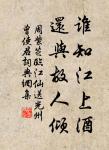 誰知江上酒
還與故人傾
周紫芝臨江仙送光州
曾使君詞典網集